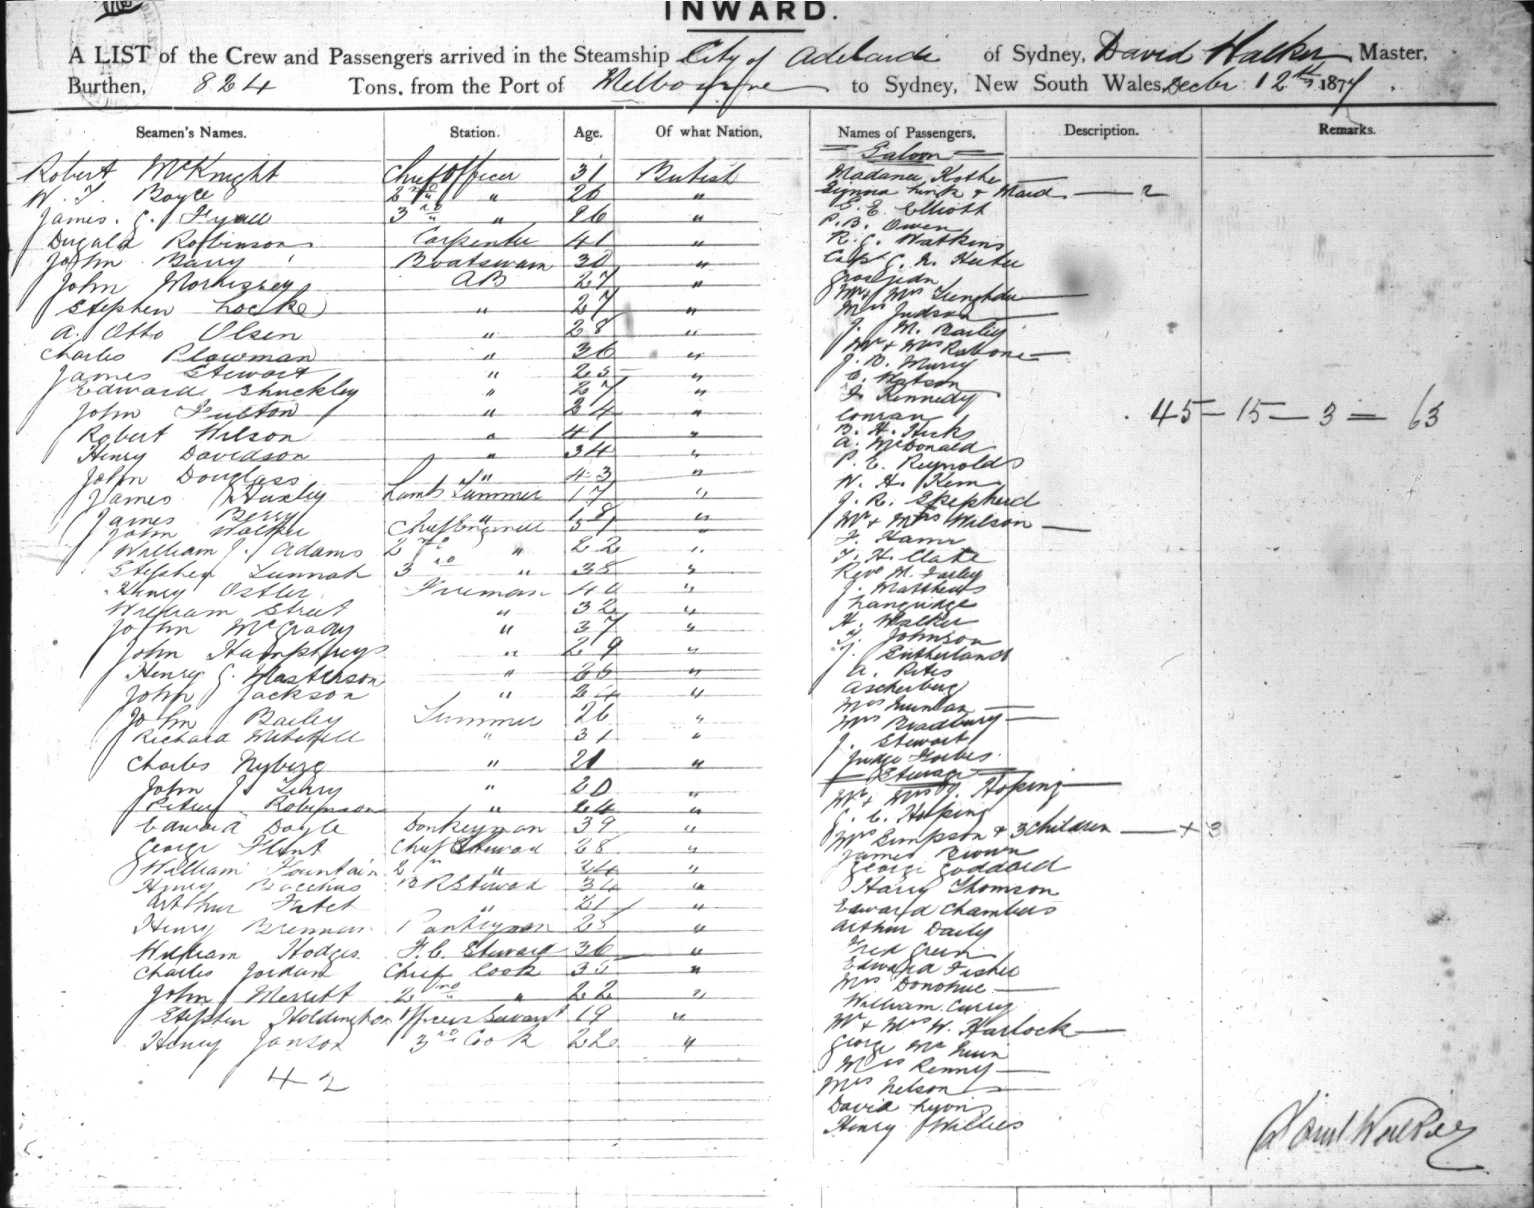 INWARD.
A LIST of the Crew and Passengers arrived in the Steamship City of Adelaide of Sydney, David Walker Master,
Burthen, 824 Tons, from the Port of Melbourne to Sydney, New South Wales, Decbr 12th 1877.
Seamen's Names. Station. Age. Of what Nation. Names of Passengers. Description. Remarks.
Robert McKnight Chief Officer 31 British
W. T. Boyce 2nd " 26 "
James. C. 3rd " "
Dugald Robinson Carpenter 41 "
John Barry Boatswain 30 "
John Morrissey AB 27 "
Stephen Locke " 27 "
A. Otto Olsen " 28 "
Charles Plowman " 36 "
James Stewart " 25 "
Edward Shuckley " 27 "
John Fulton " 34 "
Robert Wilson " 41 "
Henry Davidson " 34 "
John Douglass " 43 "
James Huxley Lamp Trimmer 17 "
James Berry " 18 "
John Walker Chief Engineer 51 "
William J. Adams 2nd " 22 "
Stephen 3rd " 38 "
Henry Ostler Fireman "
William Street " 32 "
John McGrady " 37 "
John Humphreys " 29 "
Henry G. Masterson " "
John Jackson " 24 "
John Bailey Trimmer 26 "
Richard Mitchell " 31 "
Charles Nyberg " 21 "
John J. Terry " 20 "
Peter Robinson " 24 "
Edward Doyle Donkeyman 39 "
George Flint Chief Steward 28 "
William Fountain 2nd " 24 "
Henry Bacchus B R Steward 34 "
Arthur " 21 "
Henry Brennan Pantryman 25 "
William Hodges F. C. Steward 36 "
Charles Jordan Chief Cook 35 "
John Merritt 2nd " 22 "
Stephen Holdington Officers Servant 19 "
Henry Janson 3rd Cook 22 "
42
Saloon
Madame Kothe
Link & Maid — 2
E. E. Elliott
P. B. Owen
R. C. Watkins
Capt G. N.
Grosjean
Mr & Mrs —
Miss Judson —
J. M. Bailey
Mr & Mrs Rabone —
J. D. Murry
C. Watson
F. Kennedy
Conran
B. H. Hicks
A. McDonald
P. E. Reynolds
W. H. Kem
J. R. Shepherd
Mr & Mrs Wilson —
T. H. Clate
Revd M. Farley
J. Matthews
Langridge
H. Walker
T. Johnson
J. Sutherland
A.
Ascherberg
Mrs —
Mrs Bradbury —
J. Stewart
Judge Forbes.
Steerage
Mr & Mrs J. Hoping —
C. E. Hoping
Mrs Simpson & 3 Children — + 3
James Brown
George Goddard
Harry Thomson
Edward Chambers
Arthur Daily
Fred Green
Edward Fisher
Mrs Donohue —
William Curry
Mr & Mrs W. Harlock —
George
Miss Renny —
Mrs Nelson —
David Lyons
Henry Willies
45 — 15 — 3 = 63
David Walker